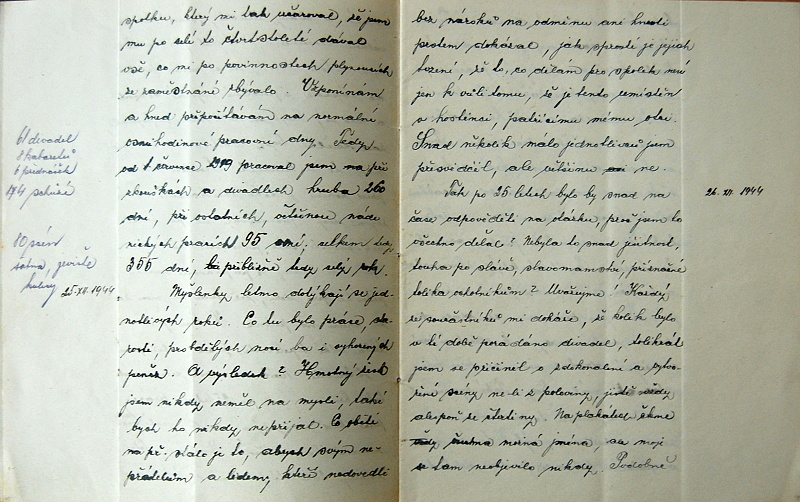 spolku, který mi tak učaroval, že jsem
mu po celé to čtvrtstoletí dával
vše, co mi po povinnostech plynoucích
ze zaměstnání zbývalo. Vzpomínám
a hned připočítávám na normální
osmihodinové pracovní dny. Tedy
od 1 července 1919 pracoval jsem na při
zkouškách a divadlech hruba 260
dní, při ostatních, většinou
pracích 95 dní, celkem tedy
355 dní, ba přibližně tedy celý rok.
61 divadel
8 kabaretů
6 přednášek
174 schůzí
80 scén
šatna, jeviště
kulisy
25.XII.1944
Myšlenky letmo dotýkají se jed-
notlivých roků. Co tu bylo práce, sta-
rostí, probdělých nocí ba i vyhozených
peněz. A výsledek? Hmotný zisk
jsem nikdy neměl na mysli, také
bych ho nikdy nepřijal. Co obětí
na př. stálo je to, abych svým ne-
přátelům a lidem, kteří nedovedli
bez nároků na odměnu ani hnouti
prstem dokázal, jak sprosté je jejich
tvrzení, že to, co dělám pro spolek není
jen k vůli tomu, že je tento umístěn
v hostinci, patřícímu mému otci.
Snad několik málo jednotlivců jsem
přesvědčil, ale většinu ne.
26. XII. 1944
Tak po 25 letech bylo by snad na
čase odpověděti na otázku, proč jsem to
všechno dělal? Nebyla to snad ješitnost,
touha po slávě, slavomamství, příznačné
tolika ochotníkům? Uvažujme! Každý
ze součastníků mi dokáže, že kolik bylo
v té době pořádáno divadel, tolikrát
jsem se přičinil o zdokonalení a vytvo-
ření scény ne-li z poloviny, jistě vždy
alespoň ze čtvrtiny. Na plakátech čteme
různá jména, ale moje
se tam neobjevilo nikdy. Podobně